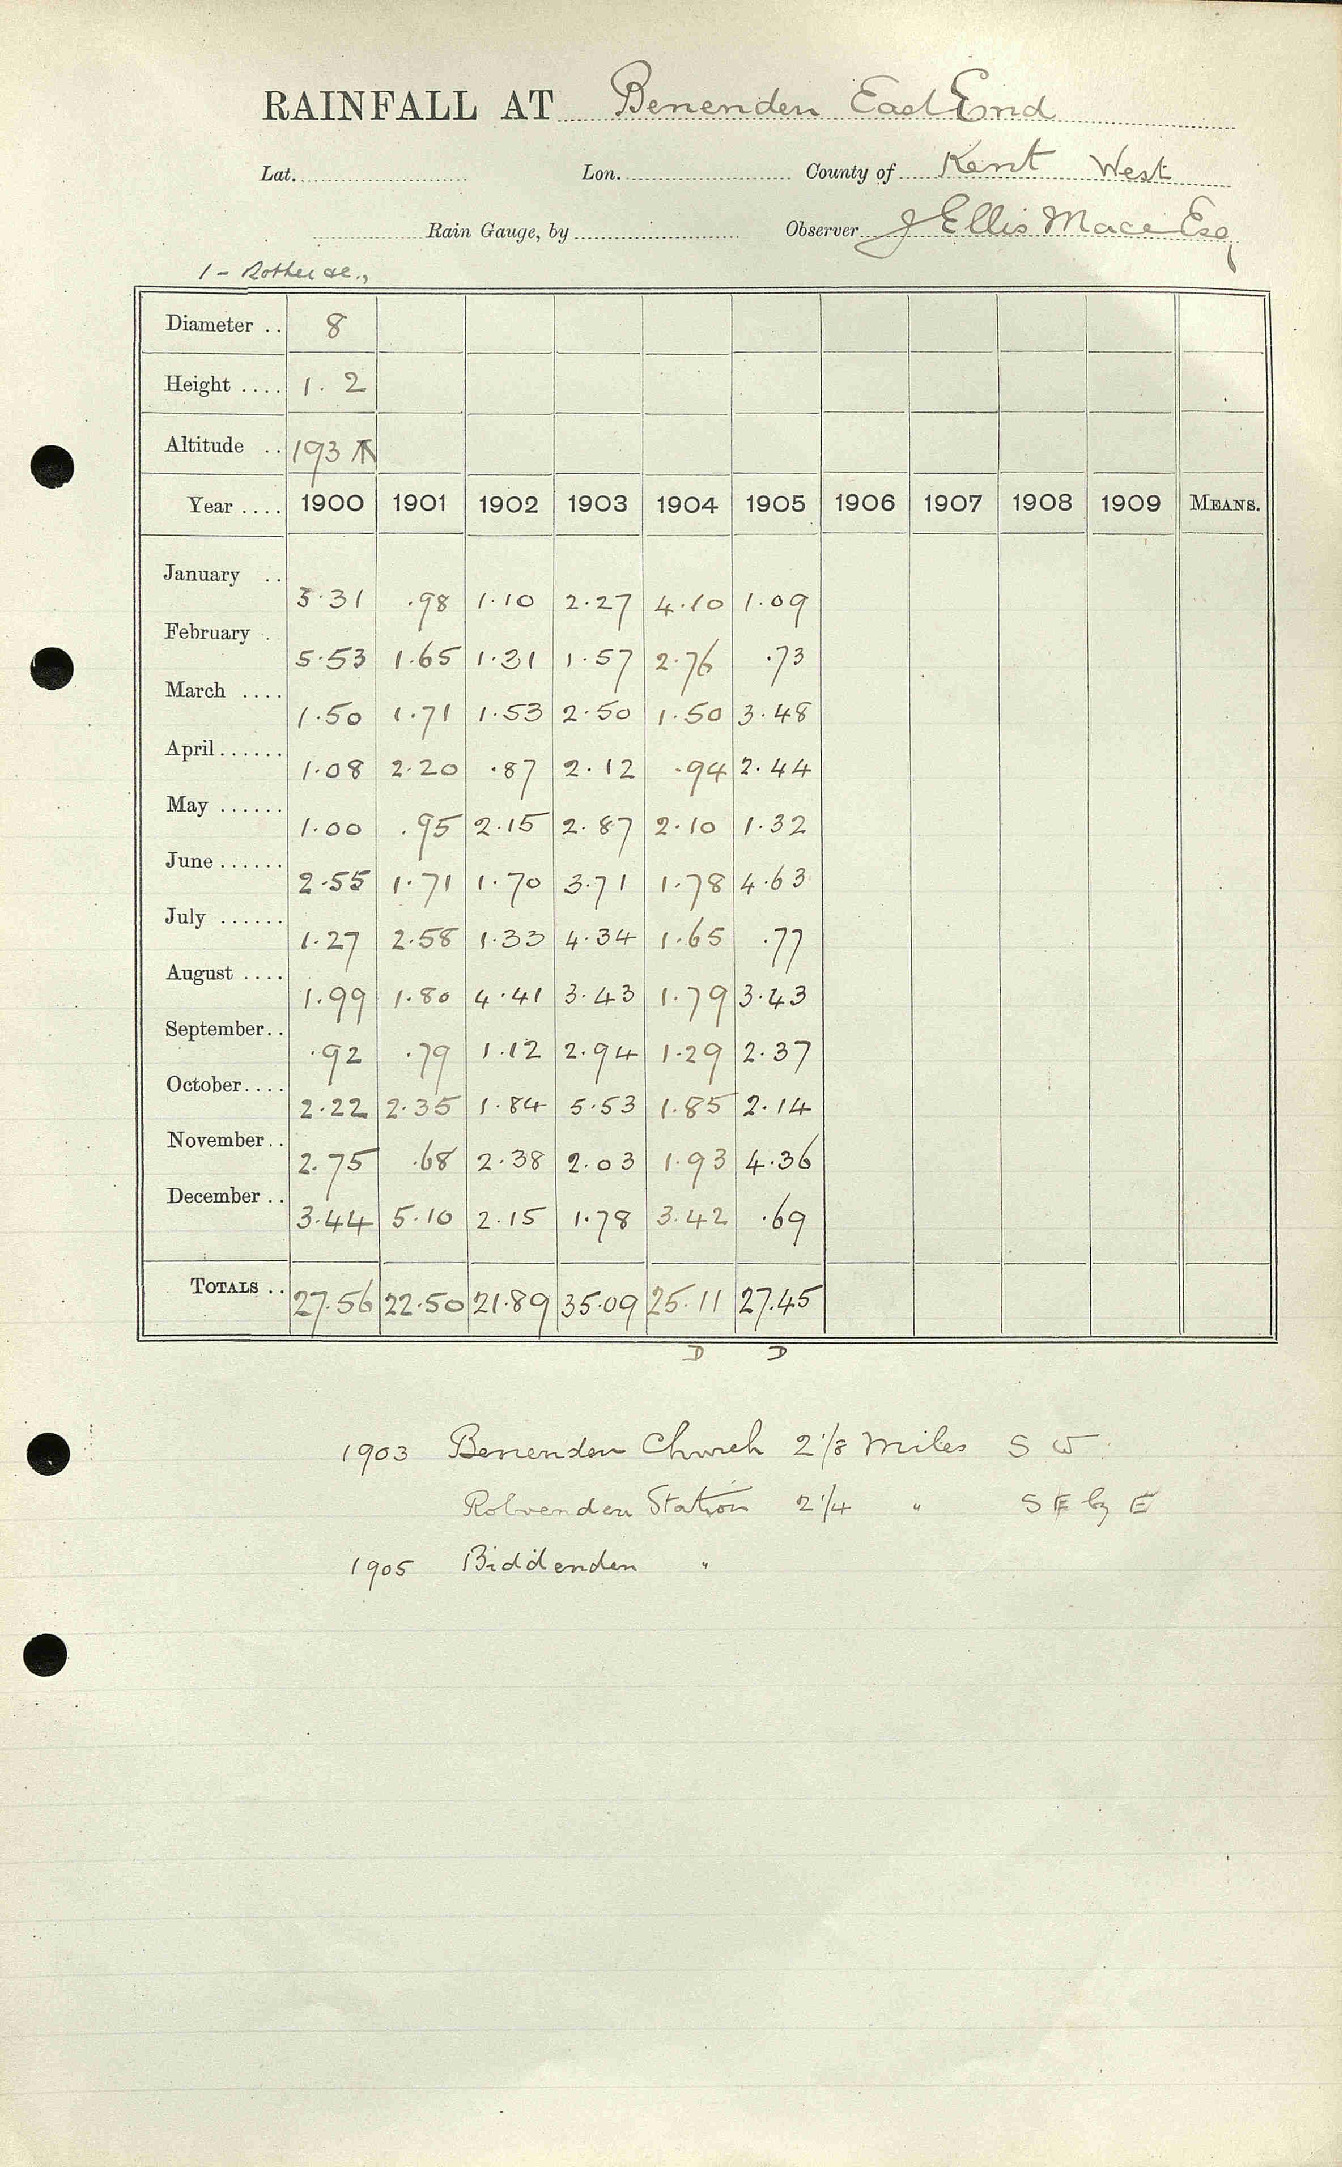 RAINFALL AT Benenden East End
Lat. Lon. County of Kent West
Rain Gauge, by Observer J Ellis Mace Esq
1 - Rother &c.,
Diameter .. 8
Height .... 1. 2
Altitude .. 193
Year .... 1900 1901 1902 1903 1904 1905 1906 1907 1908 1909 MEANS.
January .. 3.31 .98 1.10 2.27 4.10 1.09
February . 5.53 1.65 1.31 1.57 2.76 .73
March .... 1.50 1.71 1.53 2.50 1.50 3.48
April...... 1.08 2.20 .87 2.12 .94 2.44
May ...... 1.00 .95 2.15 2.87 2.10 1.32
June...... 2.55 1.71 1.70 3.71 1.78 4.63
July ...... 1.27 2.58 1.33 4.34 1.65 .77
August .... 1.99 1.80 4.41 3.43 1.79 3.43
September.. .92 .79 1.12 2.94 1.29 2.37
October.... 2.22 2.35 1.84 5.53 1.85 2.14
November.. 2.75 .68 2.38 2.03 1.93 4.36
December.. 3.44 5.10 2.15 1.78 3.42 .69
TOTALS .. 27.56 22.50 21.89 35.09 25.11 27.45
D D
1903 Benenden Church 2 1/8 Miles S W.
Rolvenden Station 2 1/4 " S E by E
1905 Biddenden "